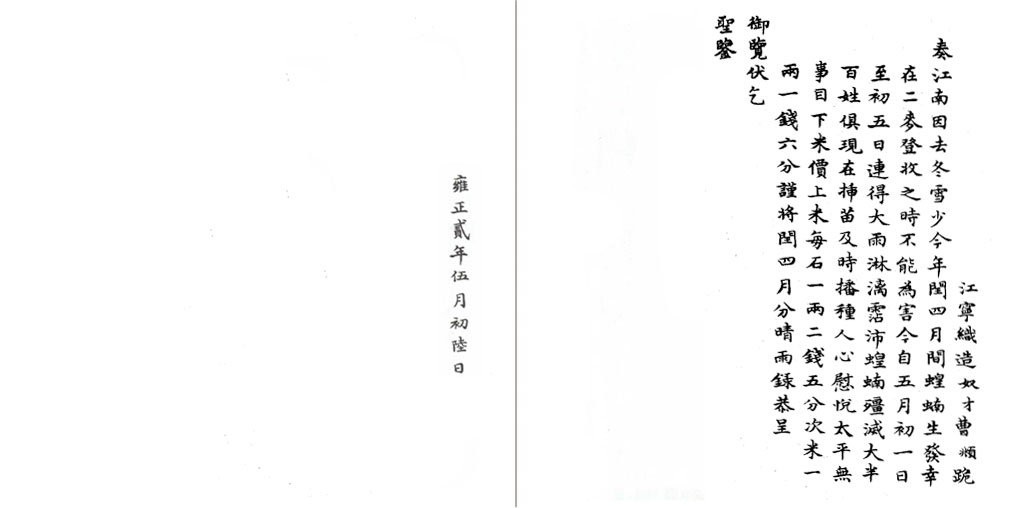 江寧織造奴才曹頫跪
奏江南因去冬雪少今年閏四月間蝗蝻生發幸
在二麥登收之時不能為害今自五月初一日
至初五日連得大雨淋漓霑沛蝗蝻殭滅大半
百姓俱現在揷苗及時播種人心慰悅太平無
事目下米價上米每石一兩二錢五分次米一
兩一錢六分謹将閏四月分晴雨録恭呈
御覽伏乞
聖鑒
雍正貳年伍月初陸日